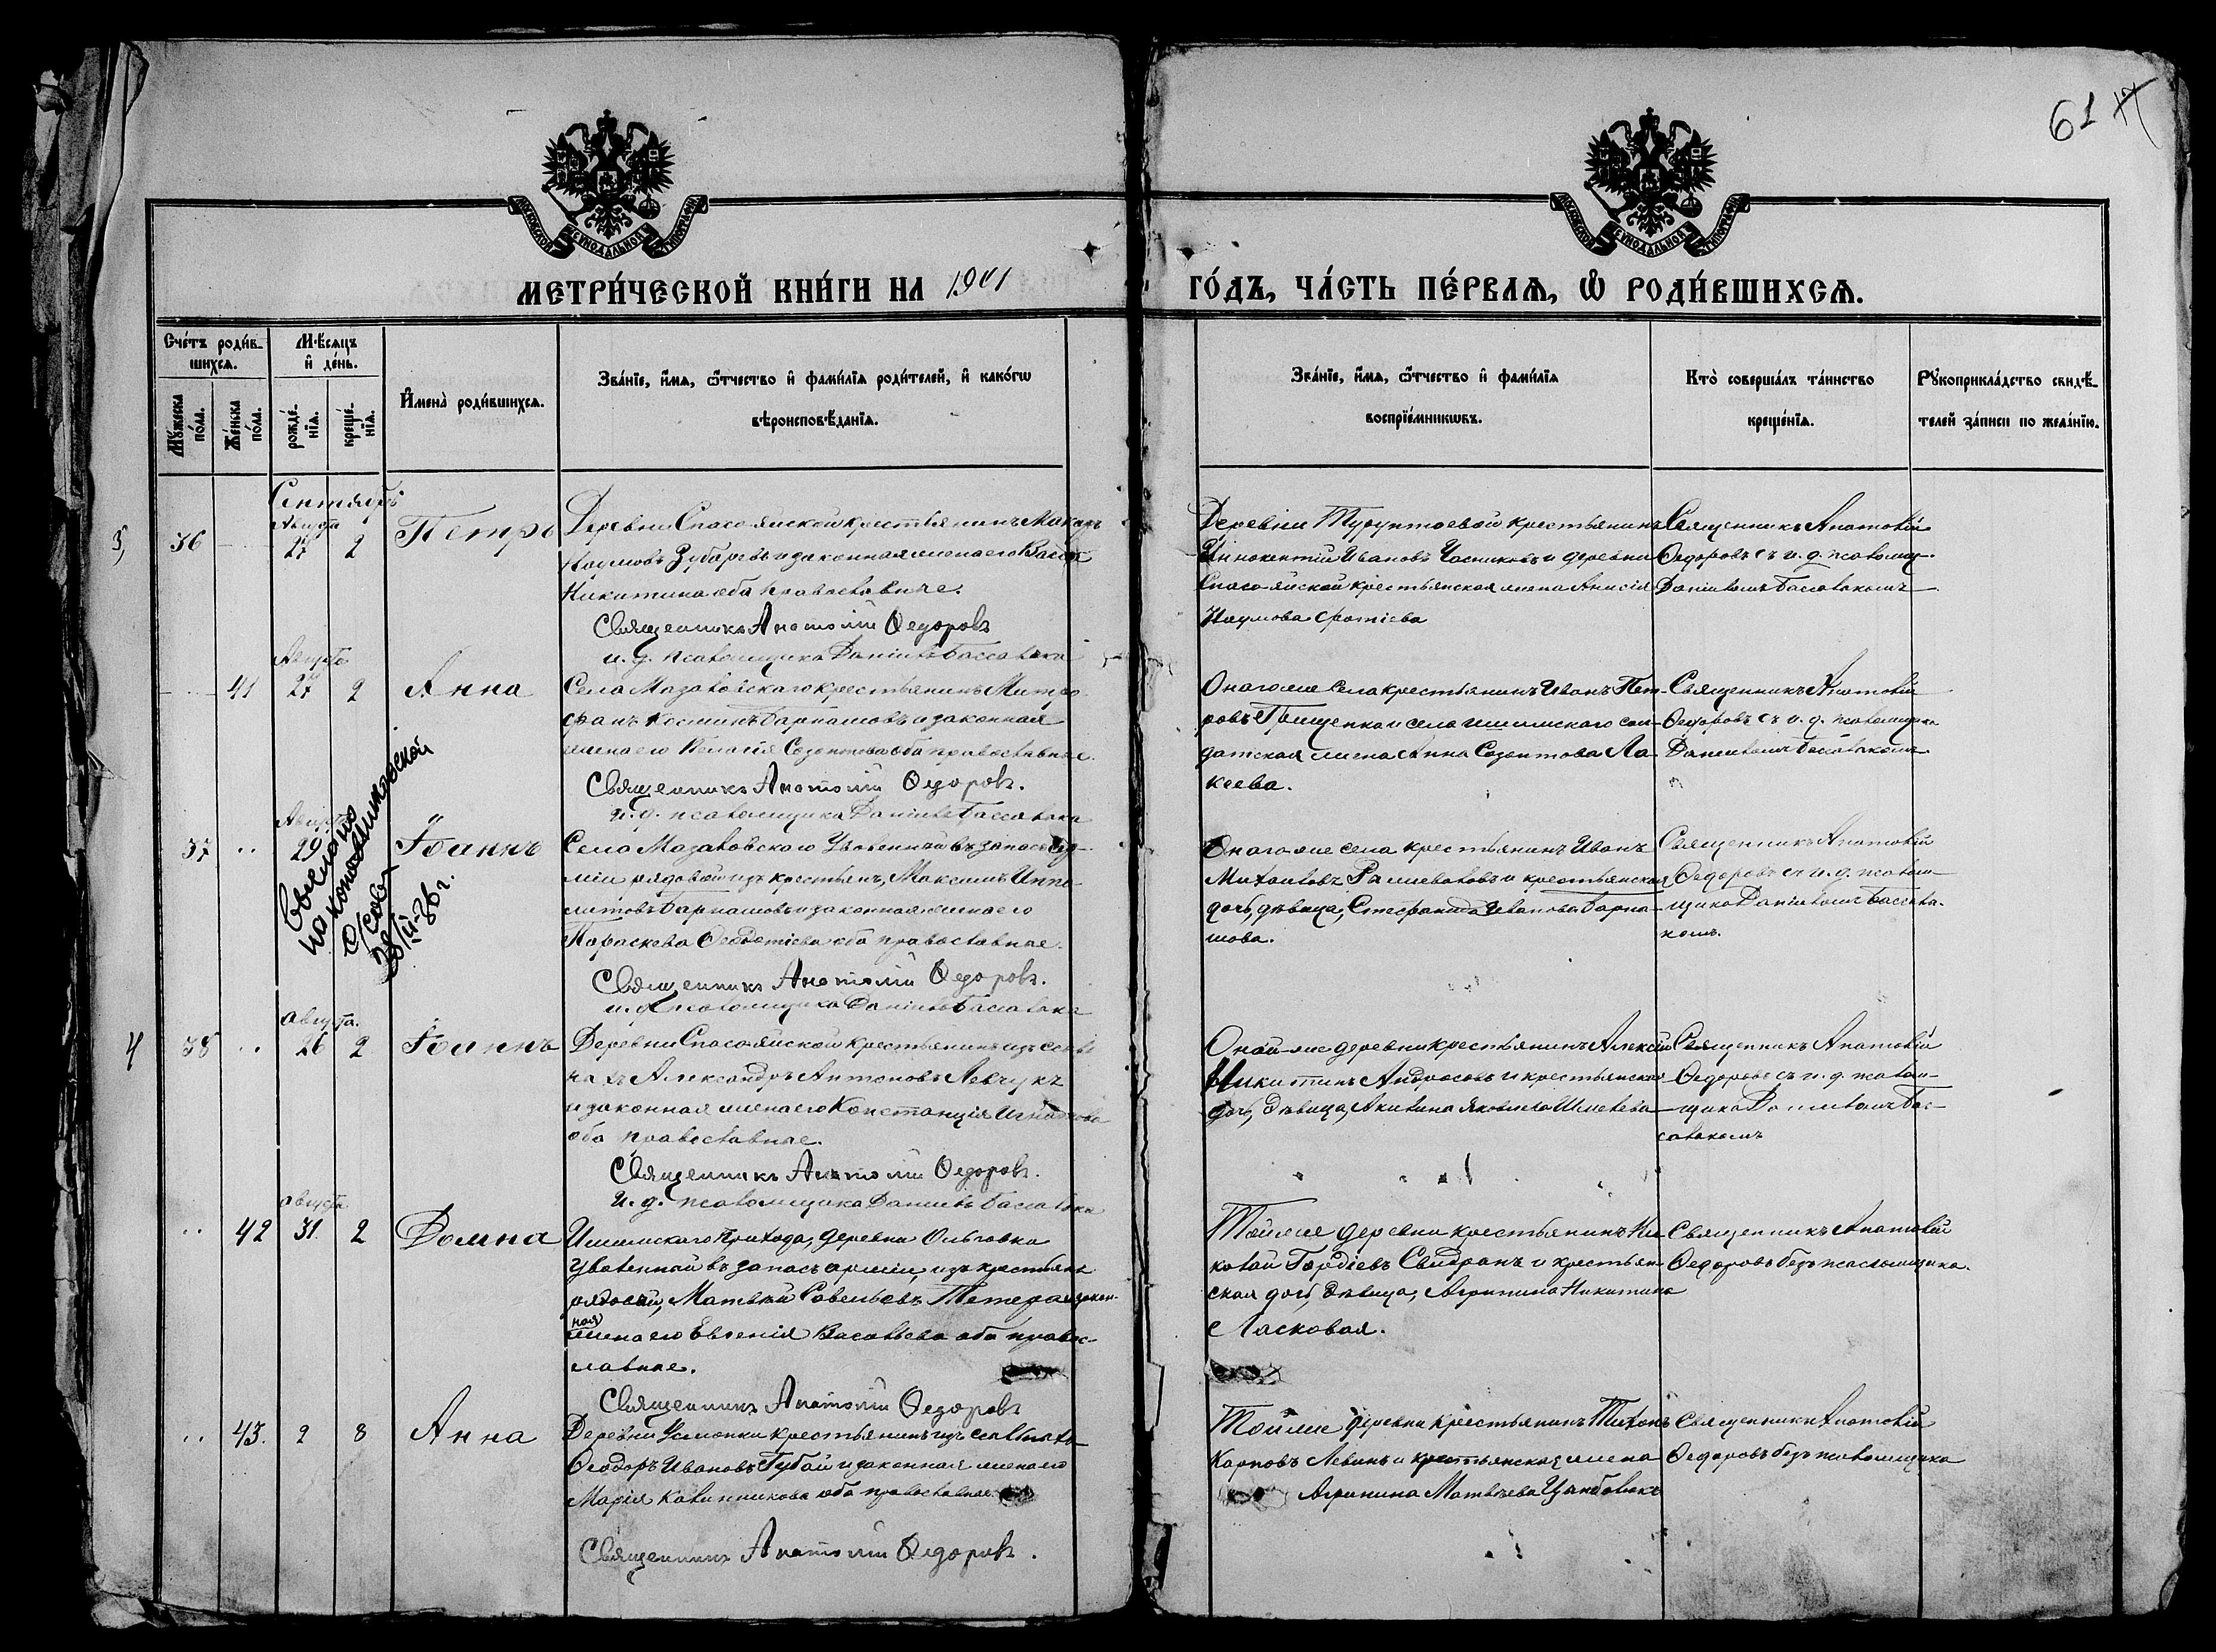 61
МОСКОВСКОЙ СѴНОДАЛЬНОЙ ТИПОГРАФІИ
МОСКОВСКОЙ СѴНОДАЛЬНОЙ ТИПОГРАФІИ
МЕТРИ́ЧЕСКОЙ КНИ́ГИ НА 1901
ГО́ДЪ, ЧА́СТЬ ПЕ́РВАѦ, Ѡ РОДИ́ВШИХСѦ.
Сче́тъ роди́в-
шихсѧ.
Мѣ́сяцъ
и҆ де́нь.
Мꙋ́жеска
по́ла.
Же́нска
по́ла.
рожде́-
нїѧ.
креще́-
нїѧ.
И҆мена̀ роди́вшихсѧ.
Зва́нїе, и҆́мѧ, ѻ҆́тчество и҆ фами́лїѧ роди́телей, и҆ како́гѡ
вѣроисповѣ́данїѧ.
Зва́нїе, и҆́мѧ, ѻ҆́тчество и҆ фами́лїѧ
воспрїе́мникѡвъ.
Кто̀ соверша́лъ та́инство
креще́нїѧ.
Рꙋкоприкла́дство свидѣ́-
телей за́писи по жела́нїю.
Сентябрь
36
Августа
27 2
Петръ
Деревни Спасо-яйской крестьянинъ Макаръ
Наумовъ Зубаревъ и законная жена его
Никитина оба православные.
Священникъ Анатолій Ѳедоровъ
и. д. псаломщика Даніилъ
Деревни крестьянинъ
Иннокентій Ивановъ Часниковъ и деревни
Спасо-яйской крестьянская жена Анисія
Наумова Фотіева
Священникъ Анатолій
Ѳедоровъ съ и. д. псаломщ.
Даніиломъ
41
Августа
27 2
Анна
Села Мазаловскаго крестьянинъ Митро-
фанъ Косминъ Барнашовъ и законная
жена его Пелагія Созонтова оба православные.
Священникъ Анатолій Ѳедоровъ.
и. д. псаломщика Даніилъ
Онаго же села крестьянинъ Иванъ Пет-
ровъ Грищенко и села ишимскаго сол-
датская жена Анна Созонтова Ла-
кеева.
Священникъ Анатолій
Ѳедоровъ съ и. д. псаломщика
Даніиломъ
37
Августа
29
Іоаннъ
Выслано
на
28/II-36 г.
Села Мазаловскаго Уволенный въ запасъ ар-
міи рядовой изъ крестьянъ, Максимъ Иппо-
литовъ Барнашовъ и законная жена его
Параскева Ѳеодотіева оба православные.
Священникъ Анатолій Ѳедоровъ.
и. д. псаломщика Даніилъ
Онаго же села крестьянинъ Иванъ
Михаиловъ и крестьянская
дочь, дѣвица, Стефанида Иванова Барна-
шова.
Священникъ Анатолій
Ѳедоровъ съ и. д. псалом-
щика Даніиломъ
4
38
августа.
26 2
Іоаннъ
Деревни Спасо-яйской крестьянинъ изъ ссыль-
ныхъ Александръ Антоновъ Левчукъ
и законная жена его Констанція Игнатова
оба православные.
Священникъ Анатолій Ѳедоровъ.
и. д. псаломщика Даніилъ
Оной-же деревни крестьянинъ Алексій
Никитинъ Андросовъ и крестьянская
дочь, дѣвица, Акилина Яковлева
Священникъ Анатолій
Ѳедоровъ съ и. д. псалом-
щика Даніиломъ
42
августа
31 2
Домна
Ишимскаго прихода, деревни Ольговки
уволенный въ запасъ арміи, изъ крестьянъ
рядовой, Матвѣй Савельевъ Тетера и закон-
ная
жена его Евгенія Васильева оба право-
славные.
Священникъ Анатолій Ѳедоровъ
Той же деревни крестьянинъ Ни-
колай Гордіевъ и крестьян-
ская дочь, дѣвица, Агрипина Никитина
Ласковая.
Священникъ Анатолій
Ѳедоровъ безъ псаломщика.
43.
2 8
Анна
Деревни Усманки крестьянинъ изъ ссыльныхъ
Ѳеодоръ Ивановъ Губай и законная жена его
Марія оба православные.
Священникъ Анатолій Ѳедоровъ.
Той же деревни крестьянинъ Тихонъ
Карповъ Левинъ и крестьянская жена
Агрипина Матвѣева
Священникъ Анатолій
Ѳедоровъ безъ псаломщика